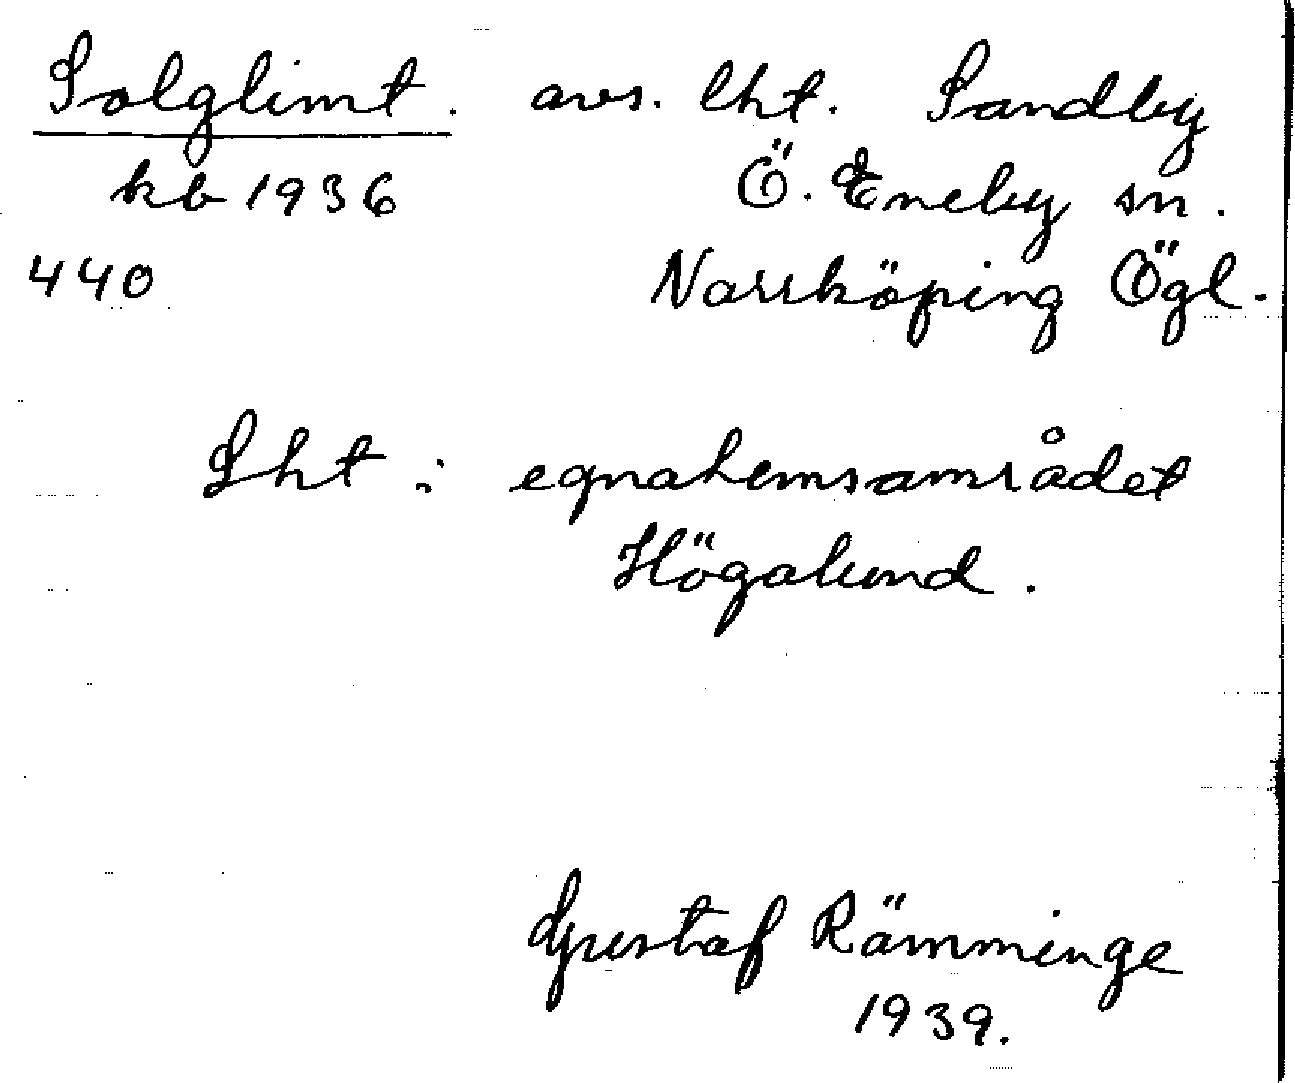 Solglimt. avs. lht. Sandby
kb 1936 Ö. Eneby sn.
440 Norrköping Ögl.
Lht: egnahemsområdet
Högalund.
Gustaf Rämminge
1939.